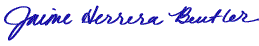 Jaime Herrera Beutler